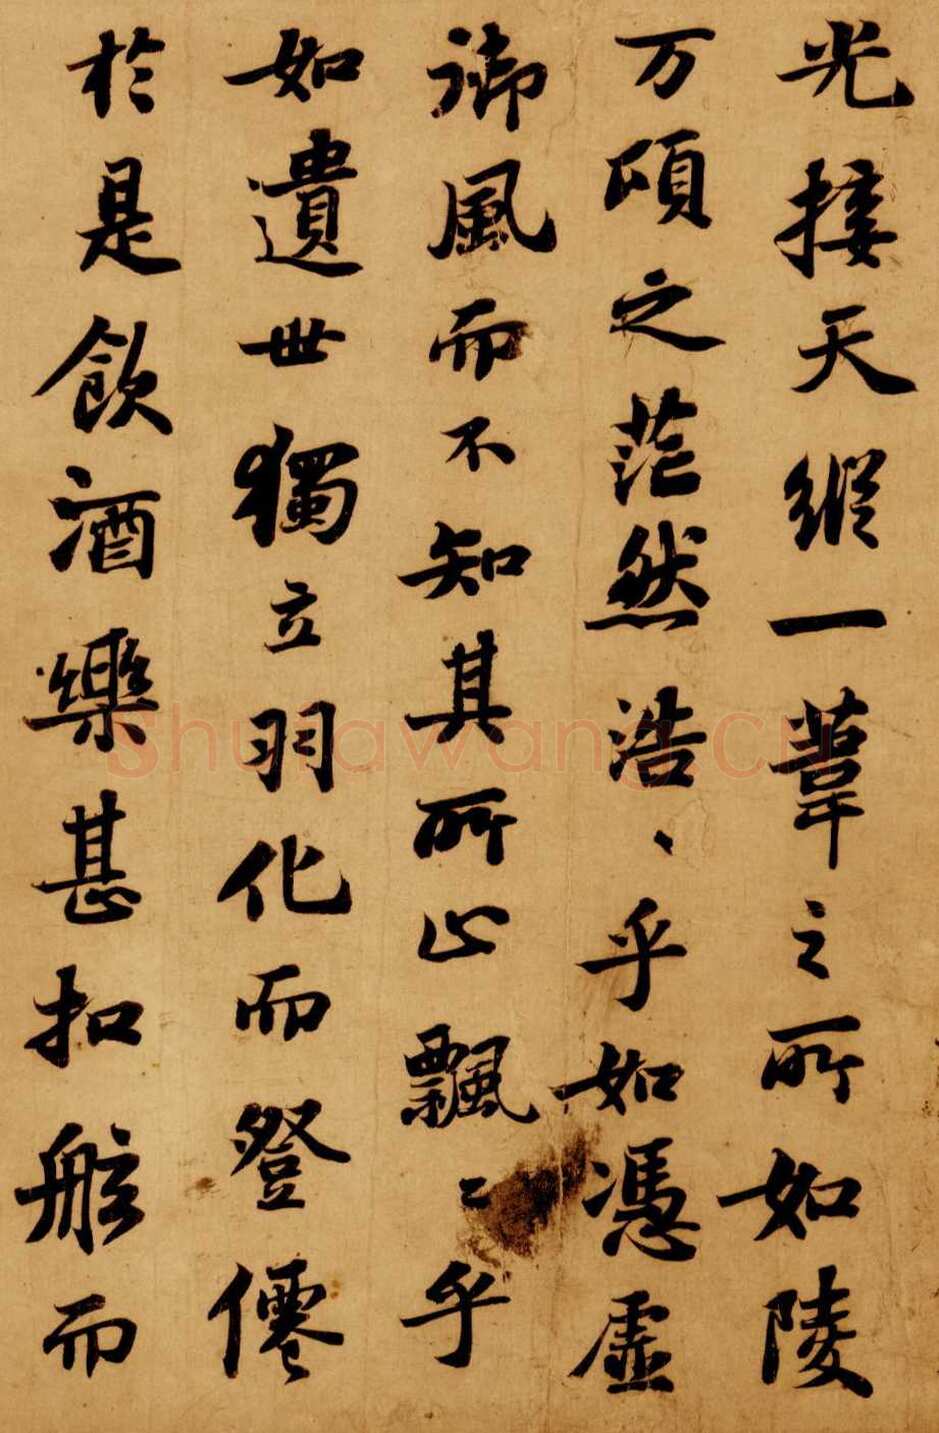 光接天縱一葦之所如陵
万頃之茫然浩、乎如馮虛
御風而不知其所止飄〻乎
如遺世獨立羽化而登僊
於是飲酒樂甚扣舷而
shufawang.cn